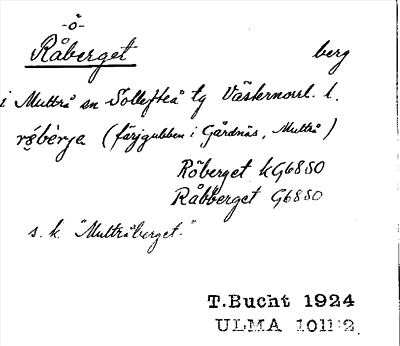 -ö-
Råberget berg
i Multrå sn Sollefteå tg Västernorrl. l.
rǿbèrja (färjgubben i Gårdnäs, Multrå)
Röberget kG6850
Råbberget G6850
s. k. "Multråberget."
T.Bucht 1924
ULMA 101:2